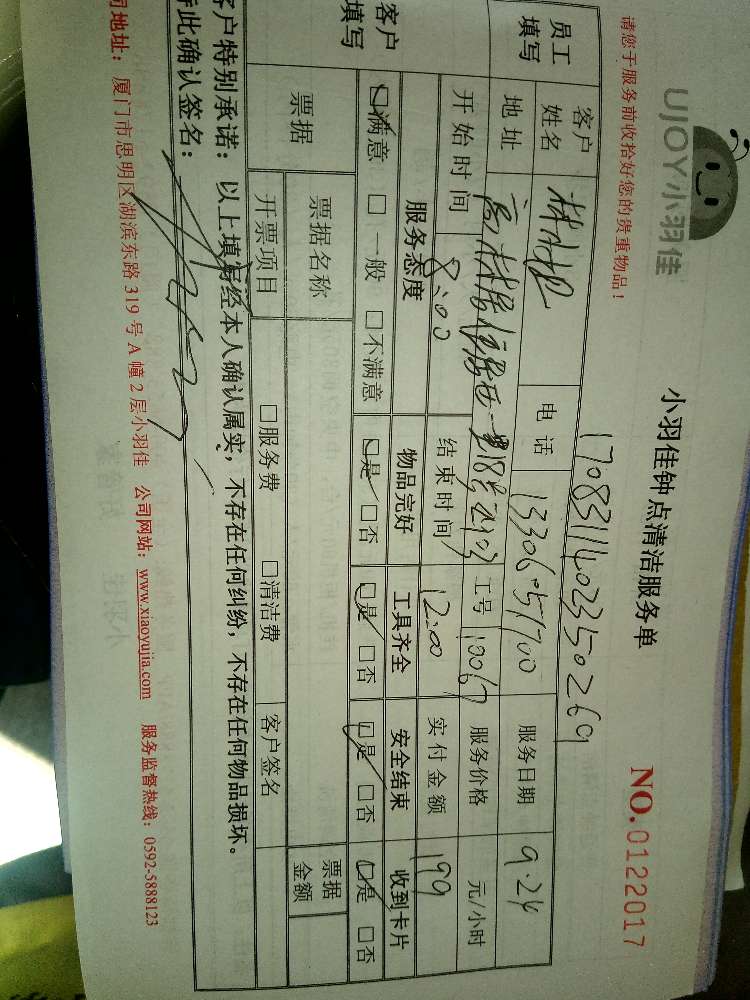 UJOY小羽佳
请您于服务前收拾好您的贵重物品！
小羽佳钟点清洁服务单
NO.0122017
1708311402350269
员工填写 客户姓名 电话 13306051700 服务日期 9.24
地址 工号 10067 服务价格 元/小时
开始时间 8:00 结束时间 12:00 实付金额 199
客户填写 服务态度 物品完好 工具齐全 安全结束 收到卡片
□满意 □一般 □不满意 □是 □否 □是 □否 □是 □否 □是 □否
票据 票据名称 票据金额
开票项目 □服务费 □清洁费 客户签名
客户特别承诺：以上填写经本人确认属实，不存在任何纠纷，不存在任何物品损坏。
特此确认签名：
司地址：厦门市思明区湖滨东路319号A幢2层小羽佳 公司网站：www.xiaoyujia.com 服务监督热线：0592-5888123